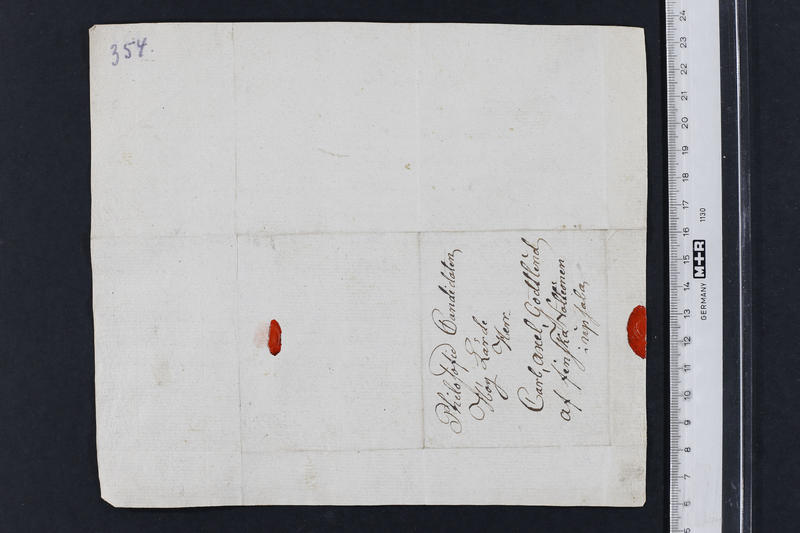 354.
Philosofie Candidaten
Hög Lärde
Herr
Carl, axel, Godtlund
af finska Nattionen
i upsala,
24
23
22
21
20
19
18
17
16
15
14
13
12
11
10
9
8
7
6
5
GERMANY M+R 1130